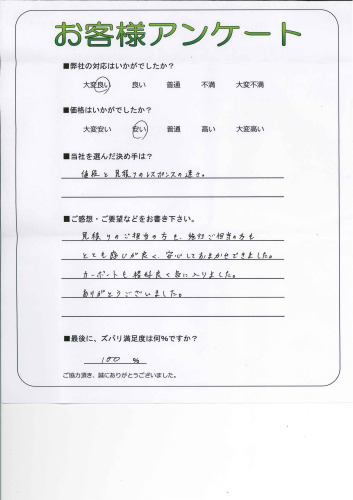 お客様アンケート
■弊社の対応はいかがでしたか？
大変良い 良い 普通 不満 大変不満
■価格はいかがでしたか？
大変安い 安い 普通 高い 大変高い
■当社を選んだ決め手は？
値段と見積りのレスポンスの速さ。
■ご感想・ご要望などをお書き下さい。
見積りのご担当の方も、施行ご担当の方も
とても感じが良く、安心しておまかせできました。
カーポートも格好良く気に入りました。
ありがとうございました。
■最後に、ズバリ満足度は何%ですか？
100 %
ご協力頂き、誠にありがとうございました。